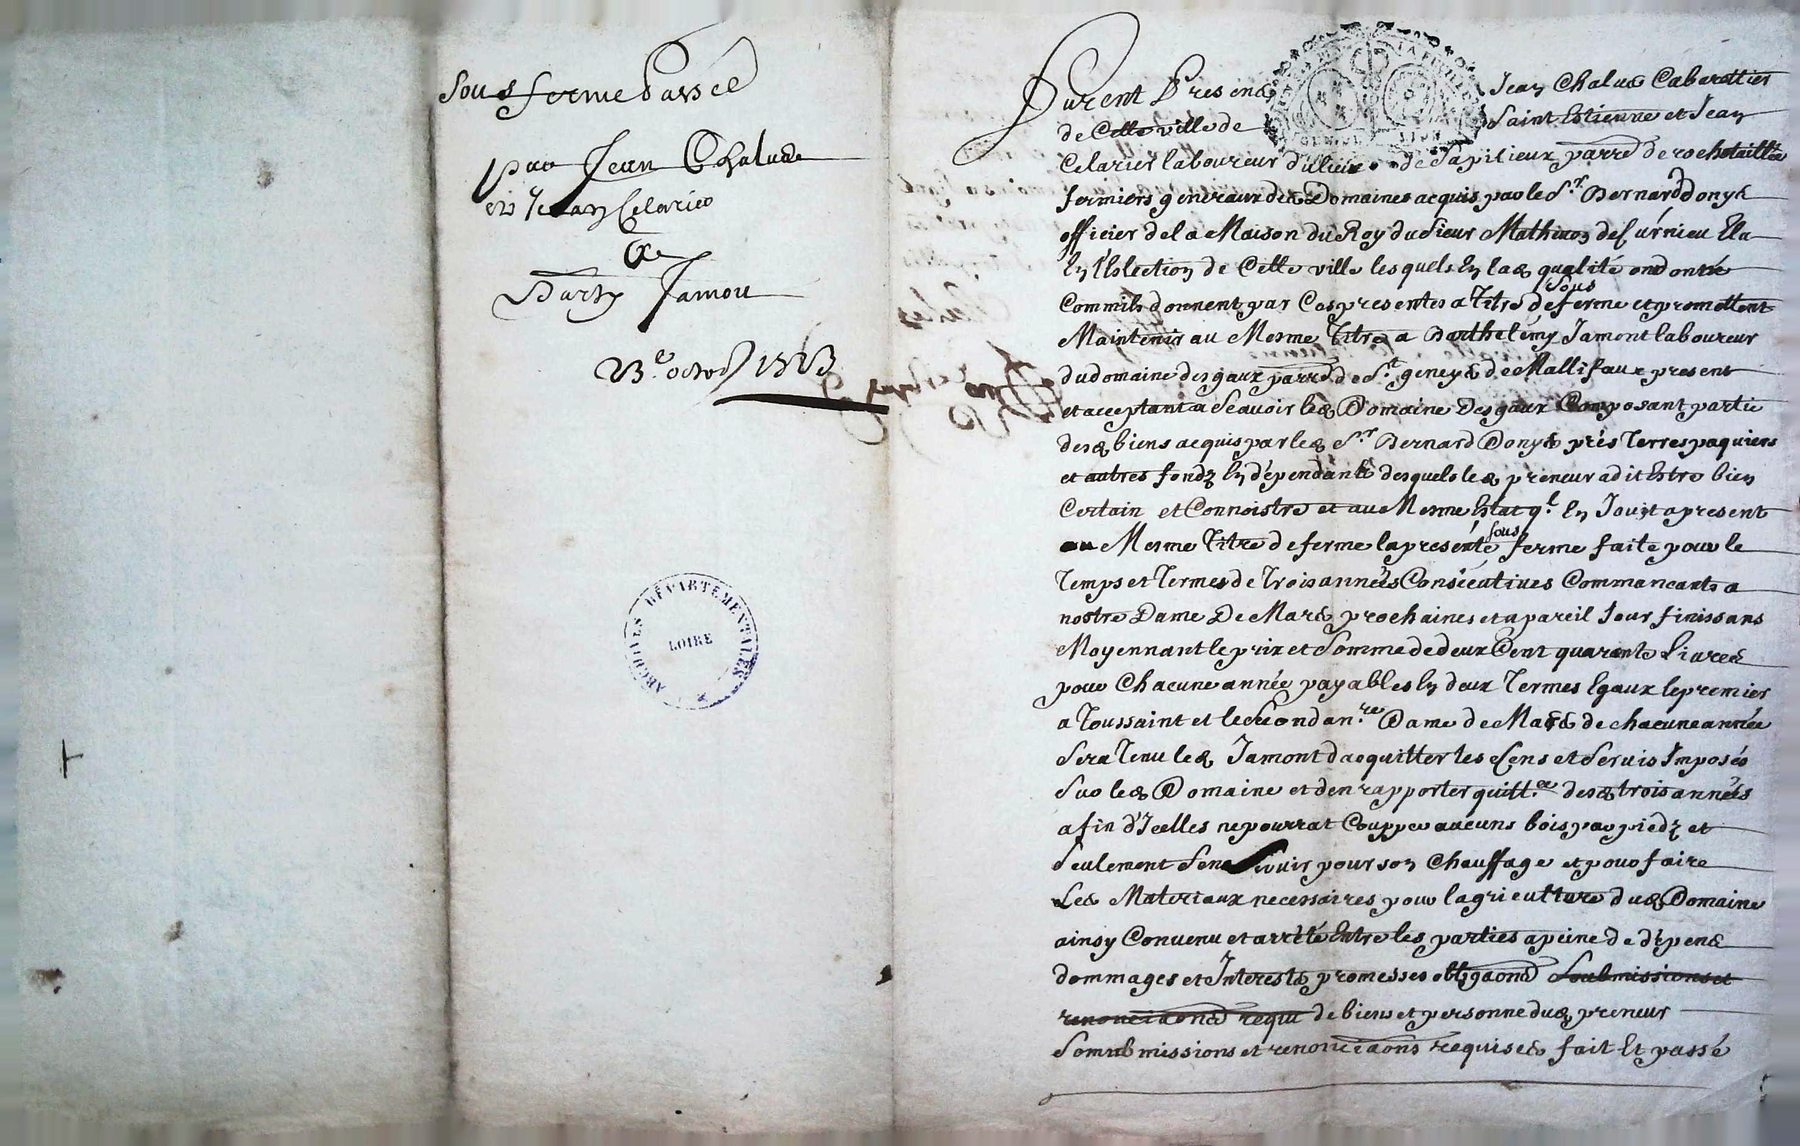 Sous ferme passée
par Jean Chalus
et Jean Celarier
a
Barthy Jamon
23.e octob 1713
ARCHIVES DÉPARTEMENTALES
LOIRE
Furent Presens Jean Chalus Cabarettier
de Cette ville de Saint Estienne et Jean
Celarier laboureur du lieu de Sapilieux parre de rochetaillée
fermiers generaux des Domaines acquis par le Sr. Bernard Donys
officier de la Maison du Roy du Sieur Mathieu de Eslu
En l'Eslection de Cette ville lesquels En lad qualité ont
Commils donnent par Ces presentes a Titre de sous ferme et promettent
Maintenir au Mesme Titre a Barthelémy Jamont laboureur
du domaine des gaux parre de St. geneys de Mallifaux present
et acceptant a Scavoir led Domaine Desgaux Composant partie
desd biens acquis par led Sr. Bernard Donys prés Terres paquiers
et autres fondz En dépendants desquels led preneur a dit Estre bien
Certain et Connoistre et au Mesme Estat ql. En Jouyt apresent
au Mesme Titre de ferme la presente sous ferme faite pour le
Temps et Termes de Trois années Consécutives Commancants a
nostre Dame De Mars prochaines et a pareil Jour finissans
Moyennant le prix et Somme de deux Cent quarante Livres
pour Chacune année payables En deux Termes Egaux le premier
a Toussaint et le Second a n.re Dame de Mars de chacune année
Sera Tenu led Jamont d'acquitter les Cens et Servis Imposés
Sur led Domaine et d'en rapporter quitt.ce desd trois années
a fin d'Icelles ne pourrat Coupper aucuns bois par piedz et
Seulement Sen Servir pour son Chauffage et pour faire
Les Materiaux necessaires pour lagriculture dud Domaine
ainsy Convenu et arrété Entre les parties a peine de dépens
dommages et Interests promesses obligaons Soubmissions et
renonciaons requi de biens et personne dud preneur
Soubmissions et renonciaons requises fait Et passé